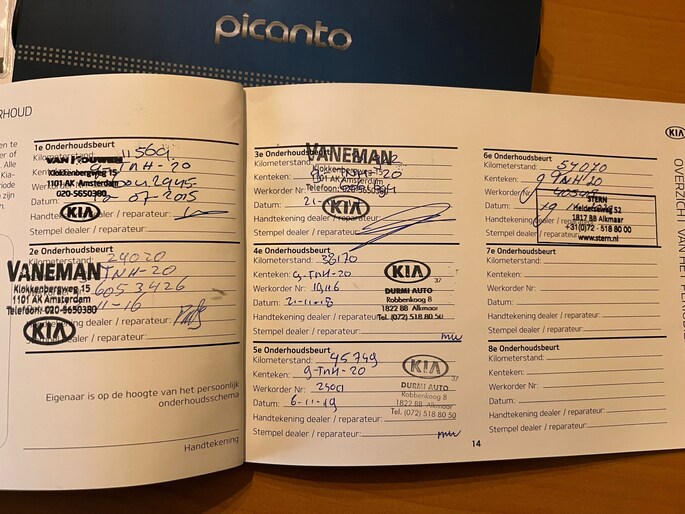 picanto
RHOUD
1e Onderhoudsbeurt
Kilometerstand: 11569
Kenteken: 9-TNH-20
Werkorder
Datum: 07-2015
Handtekening dealer / reparateur:
Stempel dealer / reparateur:
Klokkenbergweg 15
1101 AK Amsterdam
020-5650380
KIA
2e Onderhoudsbeurt
Kilometerstand: 24020
TNH-20
6053426
11-16
dealer / reparateur:
dealer / reparateur:
VANEMAN
Klokkenbergweg 15
1101 AK Amsterdam
Telefoon: 020-5650380
KIA
Eigenaar is op de hoogte van het persoonlijk
onderhoudsschema
Handtekening
3e Onderhoudsbeurt
Kilometerstand:
Kenteken:
Werkorder
Datum: 21-
Handtekening dealer / reparateur:
Stempel dealer / reparateur:
VANEMAN
Klokkenbergweg 15
1101 AK Amsterdam
Telefoon:
KIA
4e Onderhoudsbeurt
Kilometerstand: 38170
Kenteken: 9-TNH-20
Werkorder Nr:
Datum: 2-11-18
Handtekening dealer / reparateur:
Stempel dealer / reparateur:
KIA
37
DURMI AUTO
Robbenkoog 8
1822 BB Alkmaar
Tel. (072) 518 80 50
5e Onderhoudsbeurt
Kilometerstand: 45749
Kenteken: 9-TNH-20
Werkorder Nr:
Datum: 6-11-19
Handtekening dealer / reparateur:
Stempel dealer / reparateur:
KIA
37
DURMI AUTO
Robbenkoog 8
1822 BB Alkmaar
Tel. (072) 518 80 50
14
6e Onderhoudsbeurt
Kilometerstand: 57070
Kenteken: 9 TNH 20
Werkorder Nr:
Datum: 19
Handtekening dealer
Stempel dealer / reparateur:
STERN
Helderseweg 52
1817 BB Alkmaar
+31(0)72 - 518 80 00
www.stern.nl
7e Onderhoudsbeurt
Kilometerstand:
Kenteken:
Werkorder Nr:
Datum:
Handtekening dealer / reparateur:
Stempel dealer / reparateur:
8e Onderhoudsbeurt
Kilometerstand:
Kenteken:
Werkorder Nr:
Datum:
Handtekening dealer / reparateur:
Stempel dealer / reparateur:
KIA
OVERZICHT VAN HET PERIODIE